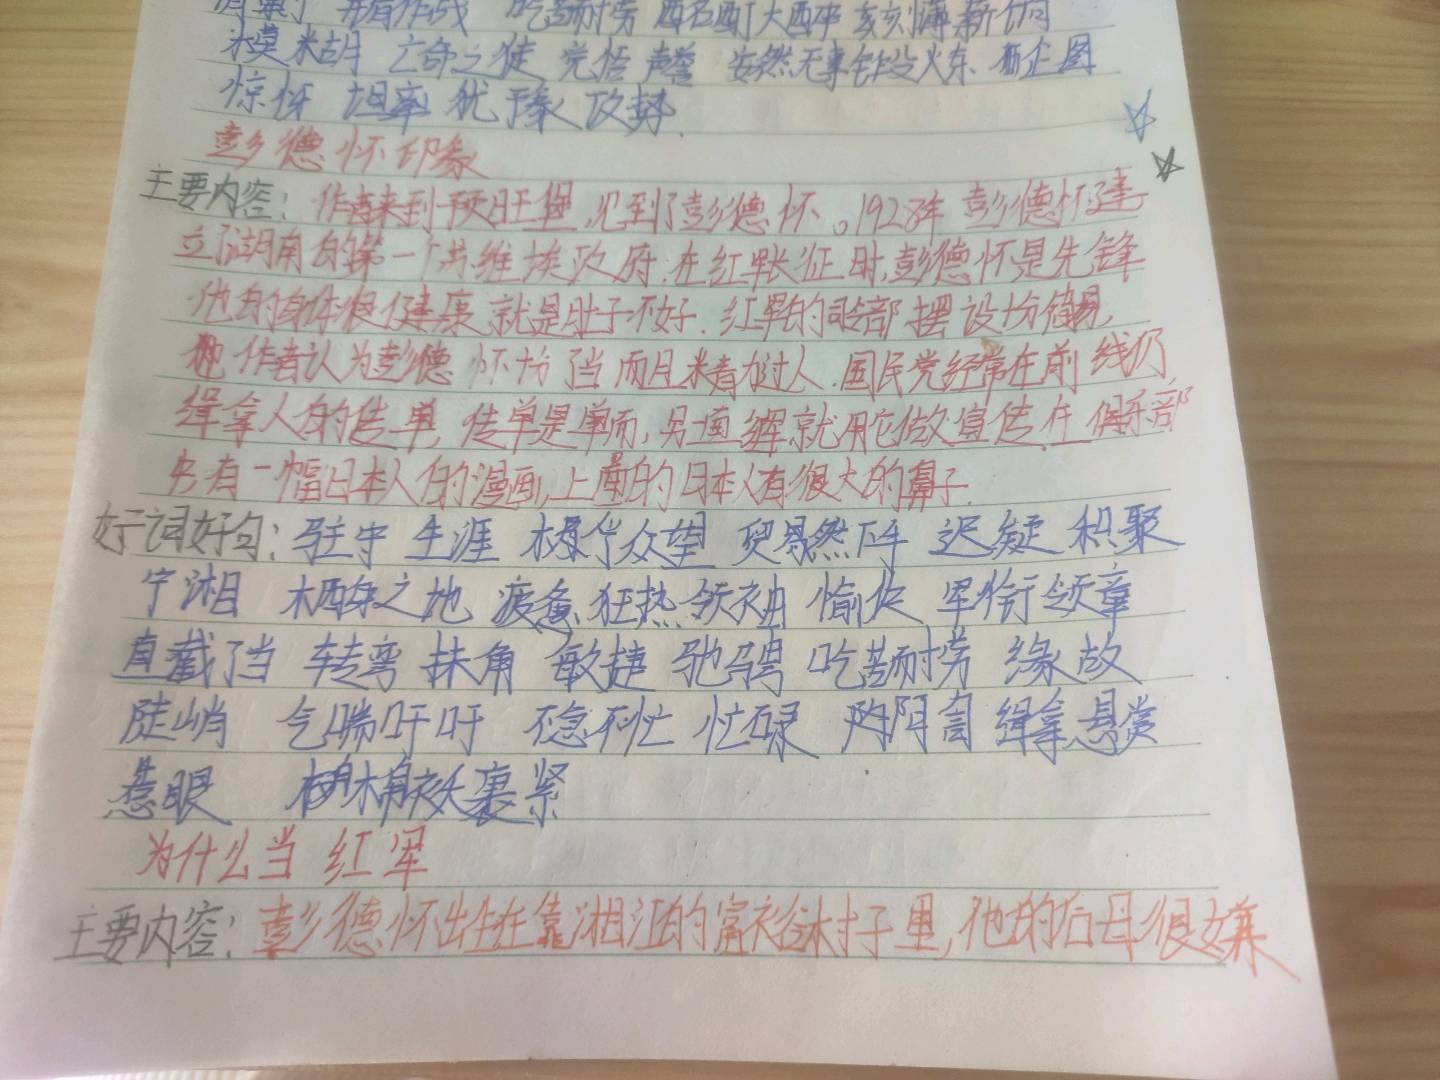 并肩作战 吃苦耐劳 酩酊大醉 刻薄 薪俸
模糊 亡命之徒 觉悟 声誉 安然无事 铤 火车 企图
惊讶 坦率 犹豫 攻势
彭德怀印象
主要内容：作者来到预旺堡，见到了彭德怀。1928年彭德怀建
立了湖南的第一个苏维埃政府，在红军长征时，彭德怀是先锋
他的身体很健康，就是肚子不好。红军的司令部摆设十分简易，
作者认为彭德怀十分了当而且精力过人。国民党经常在前线仍
缉拿人的传单，传单是单面，另一面红军就用它做宣传，在俱乐部
中有一幅日本人的漫画，上面的日本人有很大的鼻子。
好词好句：驻守 生涯 木 众望 贸然 迟疑 积聚
宁湘 之地 疲惫 狂热 领袖 愉快 军衔领章
直截了当 转弯抹角 敏捷 驰骋 吃苦耐劳 缘故
陡峭 气喘吁吁 不急不忙 忙碌 缉拿 悬赏
惹眼 棉衣 裹紧
为什么当红军
主要内容：彭德怀出生在靠湘江的富裕村子里，他的后母很嫌